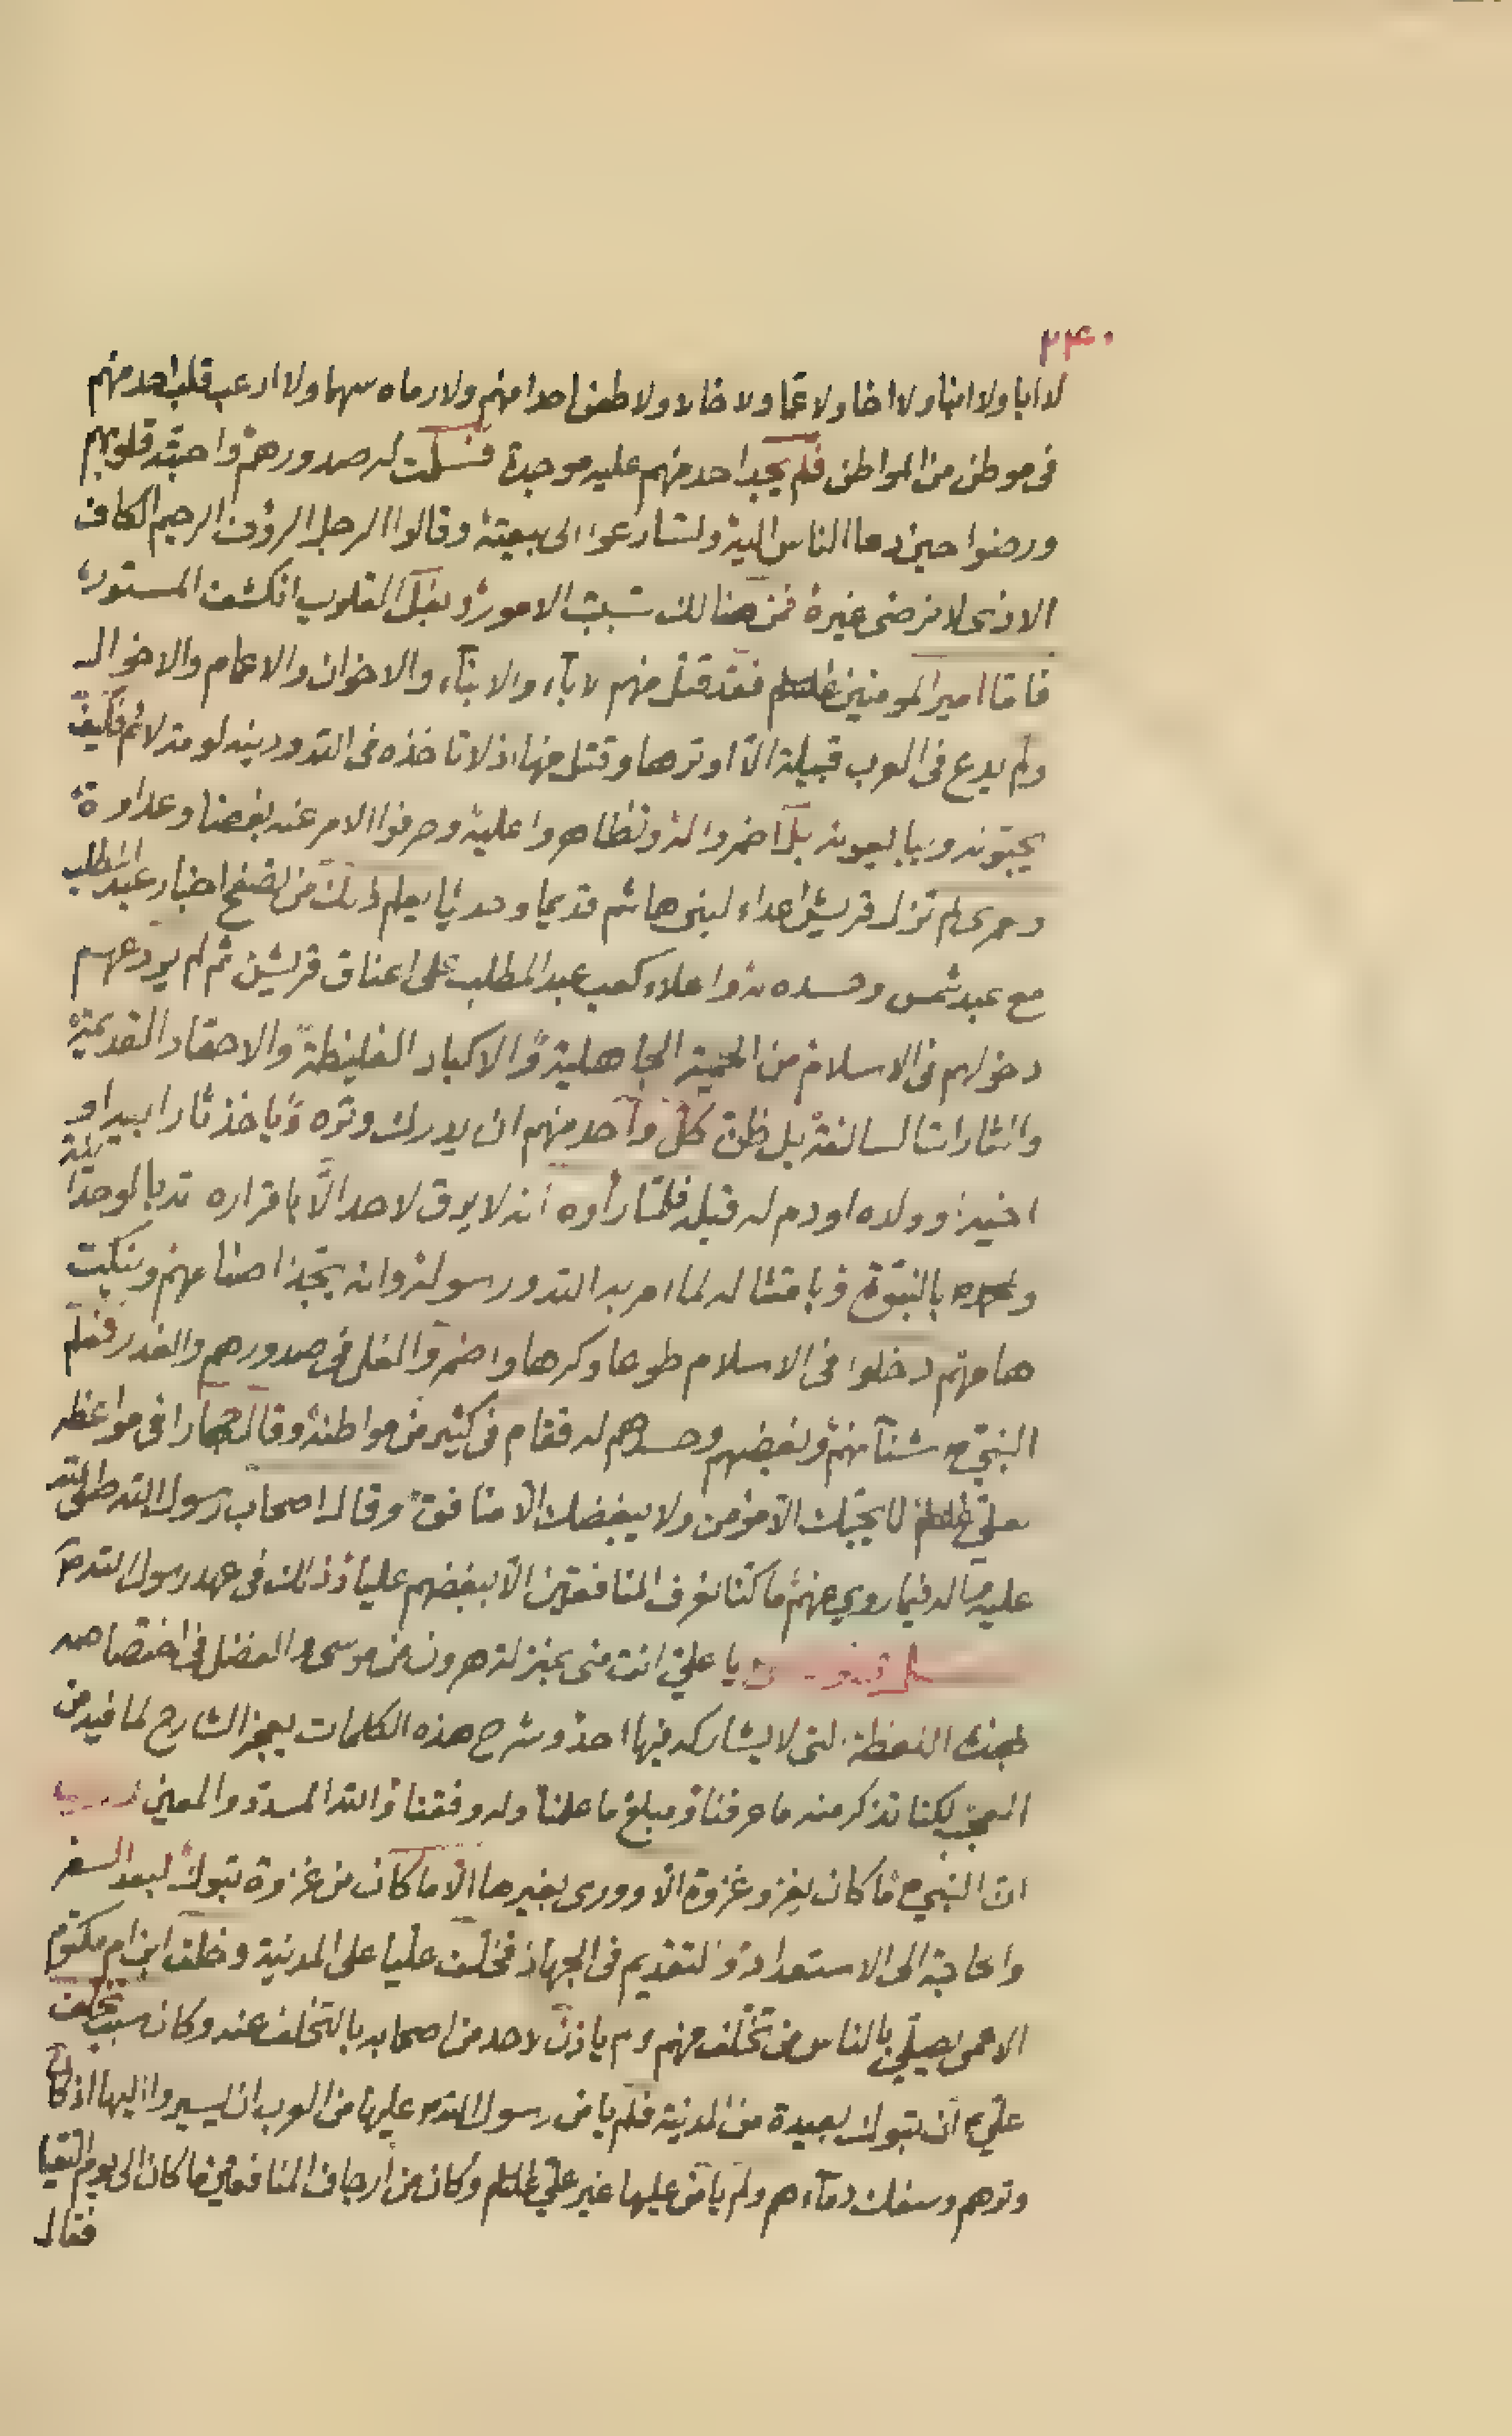 ٢٣٤٠
لا ابا ولا ابنا ولا اخا ولا عما ولا خالا ولا طعن احدا منهم ولا رماه سهما ولا ارعب قلب احد منهم
فى موطن من المواطن فلم يجد احد منهم عليه موجدة فسلمت له صدورهم واحبته قلوبهم
ورضوا حين دعا الناس اليه وتسارعوا الى بيعته وقالوا الرجل الرؤف الرحيم الكاف
الاذى لا نرضى غيره فمن هنالك تسببت الامور و القلوب انكشف المستور
فاما امير المومنين فقد قتل منهم لاباء والابناء والاخوان والاعمام والاخوال
ولم يدع فى العرب قبيلة الا اوترها وقتل منها اذ لا تاخذه فى الله ودينه لومة لائم فكيف
يحبونه ويبايعونه بل اضمروا له وتظاهروا عليه وصرفوا الامر عنه بغضا وعداوة
ولم تزل قريش اعداء لبنى هاشم قديما وحديثا يعلم ذلك من تصفح اخبار عبد المطلب
مع عبد شمس وحسده له واعلاء كعب عبد المطلب على اعناق قريش ثم لم يردعهم
دخولهم فى الاسلام من الحمية الجاهلية والاكباد الغليظة والاحقاد القديمة
والثارات السالفة بل ظن كل واحد منهم ان يدرك وتره وياخذ ثار ابيه او
اخيه او ولده او دم له قبله فلما راوه انه لا يرق لاحد الا باقراره لله بالوحدانية
و بالنبوة وبامتثاله لما امر به الله ورسوله وانه يجذ اصنامهم وينكت
هامهم دخلوا فى الاسلام طوعا وكرها واضمروا الغل فى صدورهم والغدر فعلم
النبى ص شنآنهم وبغضهم وحسدهم له فقام فى كثير من مواطنه وقال جهارا فى مواعظه
لعلى لا يحبك الا مؤمن ولا يبغضك الا منافق وقال اصحاب رسول الله صلى الله
عليه واله فيما روي عنهم ما كنا نعرف المنافقين الا ببغضهم عليا وذلك فى عهد رسول الله ص
يا علي انت منى بمنزلة هرون من موسى والفضل فى اختصاصه
بهذه اللفظة التى لا يشاركه فيها احد وشرح هذه الكلمات يعجز الشارح لما فيه من
العجب لكنا نذكر منه ما عرفنا ومبلغ ما علمنا وله وفقنا والله المسدد والمعين
ان النبى ص ما كان يغزو غزوة الا وورى بغيرها الا ما كان من غزوة تبوك لبعد السفر
والحاجة الى الاستعداد والتقديم فى الجهاد فخلف عليا على المدينة وخلف ابن ام مكتوم
الاعمى يصلي بالناس من تخلف منهم ولم ياذن لاحد من اصحابه بالتخلف عنه وكان سبب تخلف
على ع ان تبوك بعيدة من المدينة فلم يامن رسول الله ص عليها من العرب ان يسيروا اليها اذ كان
وترهم وسفك دماءهم ولم يامن عليها غير على وكان من ارجاف المنافقين ما كان الى يوم القيا
فقال